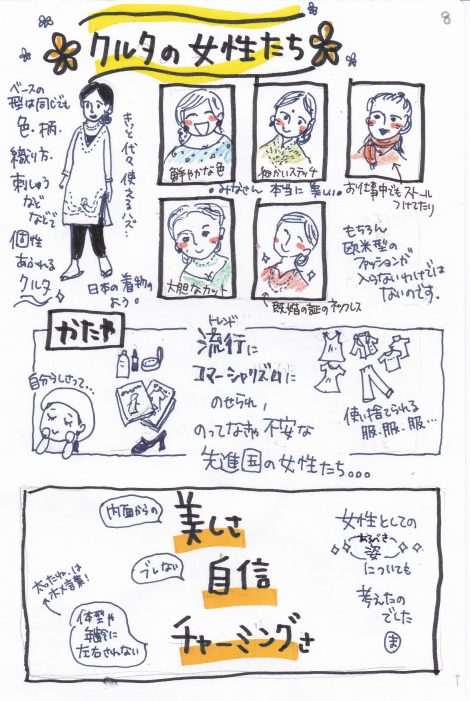 8
クルタの女性たち
ベースの
型は同じでも
色、柄、
織り方、
刺しゅう
など
などで
個性
あふれる
クルタ
きっと代々使えるハズ…
日本の着物の
よう。
鮮やかな色
細かいステッチ
お仕事中でもストール
つけてたり
みなさん本当に美しい。
大胆なカット
既婚の証のネックレス
もちろん
欧米型の
ファッションが
入らないわけでは
ないのです。
かたや
自分らしさって…
トレンド
流行に
コマーシャリズムに
のせられ、
のってなきゃ不安な
先進国の女性たち…
使い捨てられる
服、服、服…
内面からの
美しさ
ブレない
自信
太ったね、は
ホメ言葉!
体型や
年齢に
左右されない
チャーミングさ
女性としての
あるべき
姿
についても
考えたの
でした
ま